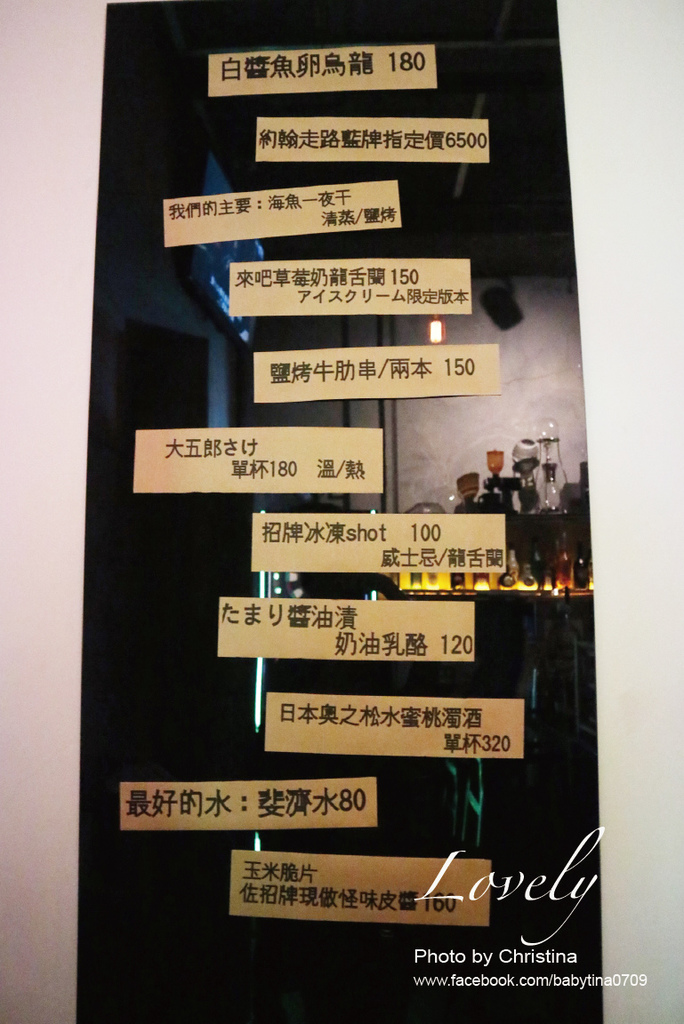 白醬魚卵烏龍 180
約翰走路藍牌指定價6500
我們的主要：海魚一夜干
清蒸/鹽烤
來吧草莓奶龍舌蘭 150
アイスクリーム限定版本
鹽烤牛肋串/兩本 150
大五郎さけ
單杯180 溫/熱
招牌冰凍shot 100
威士忌/龍舌蘭
たまり醬油漬
奶油乳酪 120
日本奧之松水蜜桃濁酒
單杯320
最好的水：斐濟水80
玉米脆片
佐招牌現做怪味皮醬 160
Lovely
Photo by Christina
www.facebook.com/babytina0709